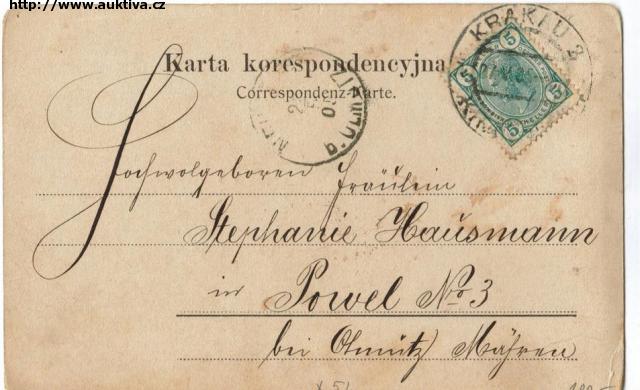 http://www.auktiva.cz
KRAKAU 2
5
5
5
5
Karta korespondencyjna
Correspondenz-Karte.
b. OLMÜTZ
Hochwolgeboren Fräulein
Stephanie Hausmann
in Powel No 3
bei Olmütz Mähren